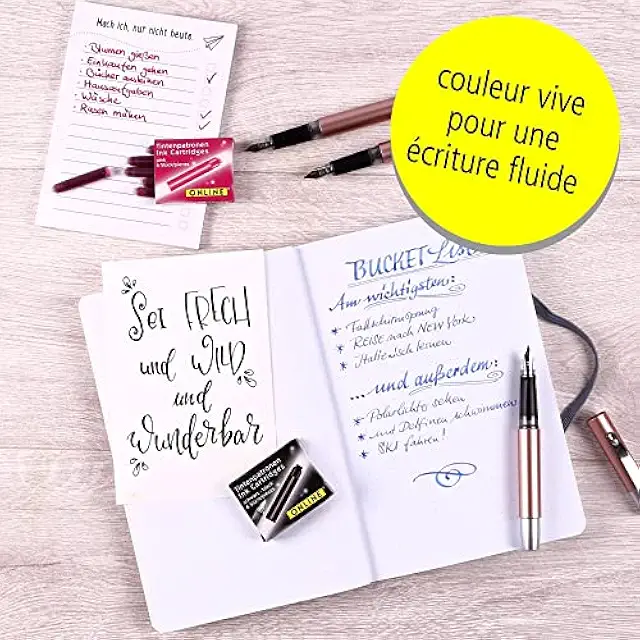 Mach ich, nur nicht heute.
· Blumen gießen
· Einkaufen gehen
· Bücher ausleihen
· Hausaufgaben
· Wäsche
· Rasen mähen
Tintenpatronen
Ink Cartridges
pink
6 Stück/pieces
ONLINE
couleur vive
pour une
écriture fluide
Sei FRECH
und WILD
und
Wunderbar
Tintenpatronen
Ink Cartridges
schwarz · black
6 Stück/pieces
ONLINE
BUCKET List
Am wichtigsten:
* Fallschirmsprung
* REISE nach NEW York
* Italienisch lernen
... und außerdem:
* Polarlichter sehen
* mit Delfinen schwimmen
* SKI fahren!